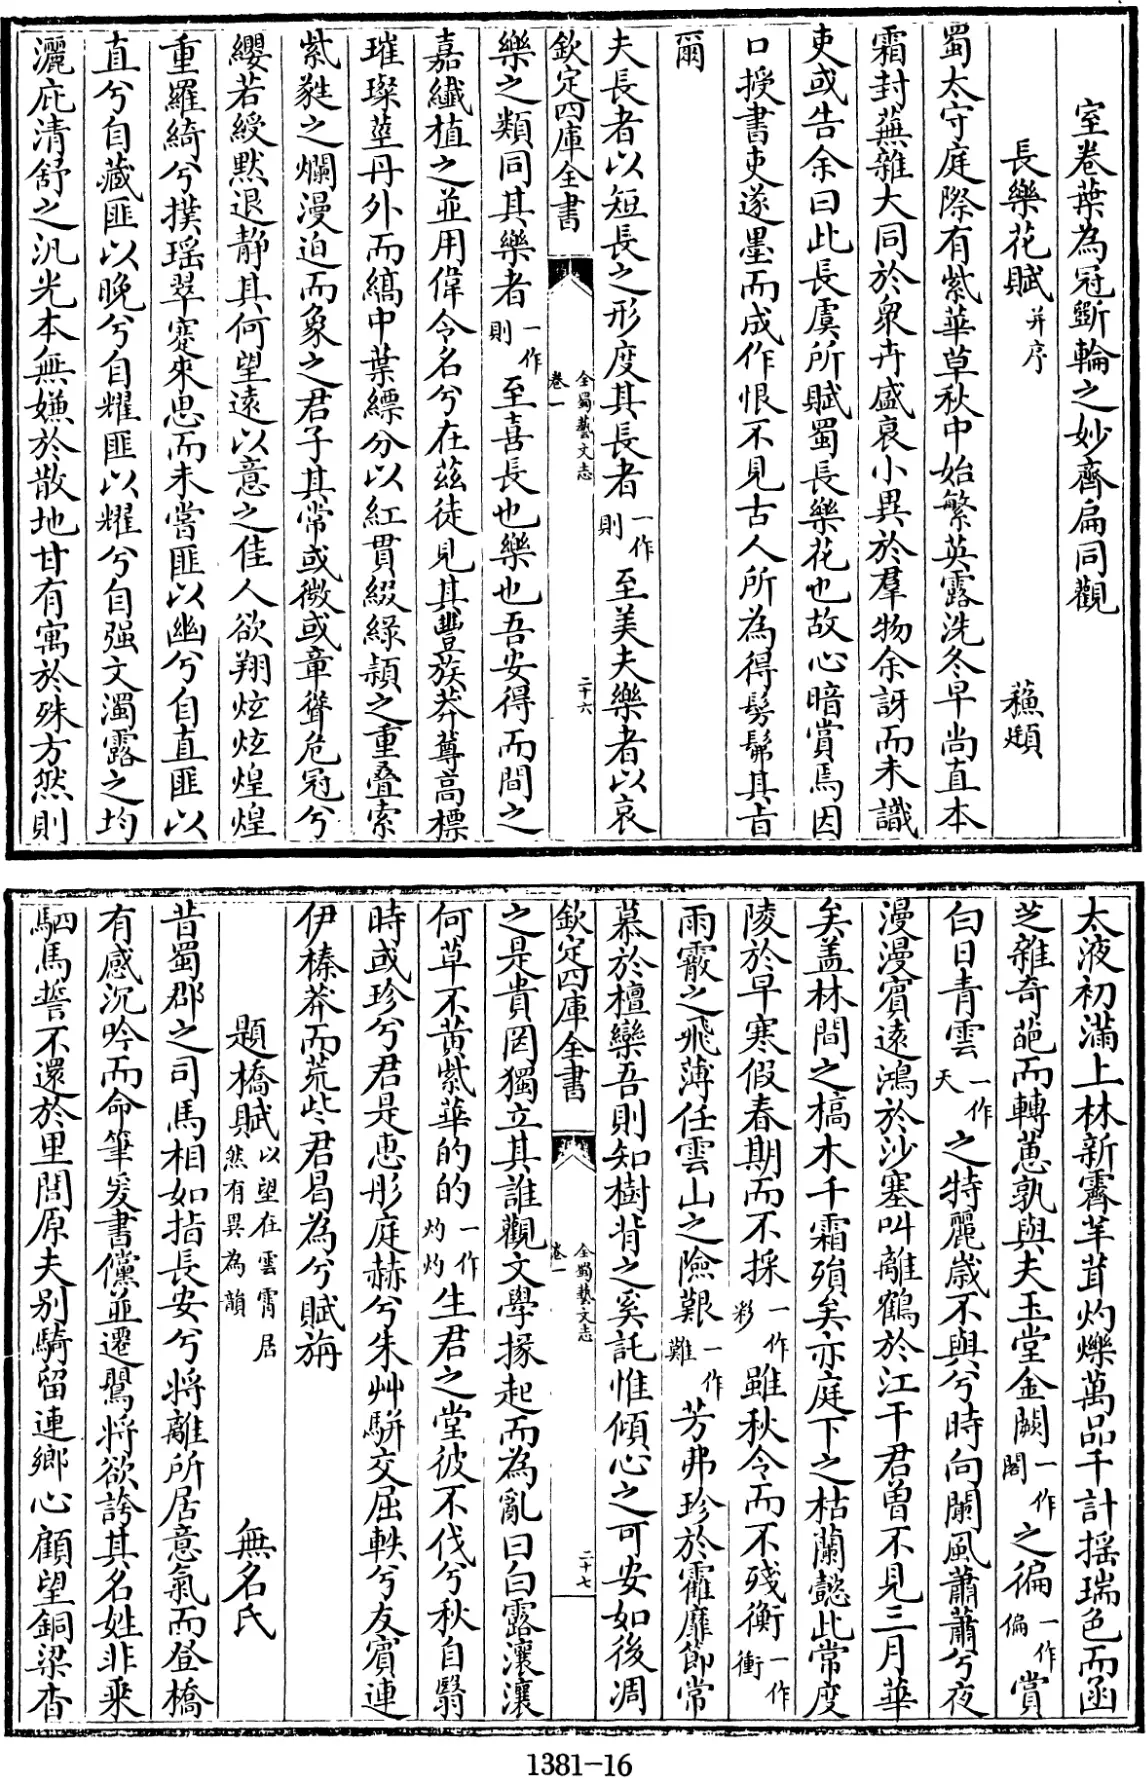 室卷葉為冠斲輪之妙齊扁同觀
長樂花賦并序 蘓頲
蜀太守庭際有紫華草秋中始繁英露洗冬早尚直本
霜封蕪雜大同於衆卉盛衰小異於羣物余訝而未識
吏或告余曰此長虞所賦蜀長樂花也故心暗賞焉因
口授書吏遂墨而成作恨不見古人所為得髣髴其旨
爾
夫長者以短長之形度其長者一作則至美夫樂者以哀
欽定四庫全書 全蜀藝文志卷一 二十六
樂之類同其樂者一作則至喜長也樂也吾安得而間之
嘉纎植之並用偉令名兮在茲徒見其豐茷莽蓴高標
璀璨莖丹外而縞中葉縹分以紅貫綴緑穎之重疊索
紫蕤之爛漫迫而象之君子其常或微或章聳危冠兮
纓若綬默退静其何望遠以意之佳人欲翔炫炫煌煌
重羅綺兮撲瑶翠蹇來思而未嘗匪以幽兮自直匪以
直兮自藏匪以晩兮自耀匪以耀兮自强文濁露之均
灑庇清舒之汎光本無嫌於散地甘有寓於殊方然則
太液初滿上林新霽芊茸灼爍萬品千計揺瑞色而函
芝雜奇葩而轉蕙孰與夫玉堂金闕一作閣之徧一作偏賞
白日青雲一作天之特麗歳不與兮時向闌風蕭蕭兮夜
漫漫賓遠鴻於沙塞叫離鶴於江干君曾不見三月華
矣盖林間之槁木千霜殞矣亦庭下之枯蘭懿此常度
陵於早寒假春期而不採一作彩雖秋令而不殘衡一作衝
雨霰之飛薄任雲山之險艱一作難芳弗珍於靃靡節常
慕於檀欒吾則知樹背之奚託惟傾心之可安如後凋
欽定四庫全書 全蜀藝文志卷一 二十七
之是貴罔獨立其誰觀文學掾起而為亂曰白露瀼瀼
何草不黄紫華的的一作灼灼生君之堂彼不伐兮秋自翳
時或珍兮君是惠彤庭赫兮朱艸駢交屈軼兮友賔連
伊榛莽而荒些君曷為兮賦旃
題橋賦以望在雲霄居然有異為韻 無名氏
昔蜀郡之司馬相如指長安兮將離所居意氣而登橋
有感沉吟而命筆爰書儻並遷鸎將欲誇其名姓非乘
駟馬誓不還於里閭原夫别騎留連鄉心顧望銅梁杳
1381-16